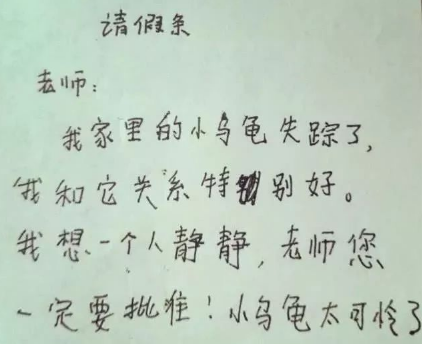 请假条
老师：
我家里的小乌龟失踪了，
我和它关系特别好。
我想一个人静静，老师您
一定要批准！小乌龟太可怜了